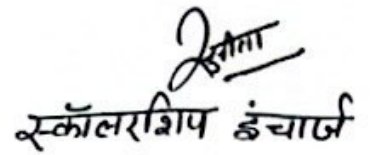 स्कॉलरशिप इंचार्ज